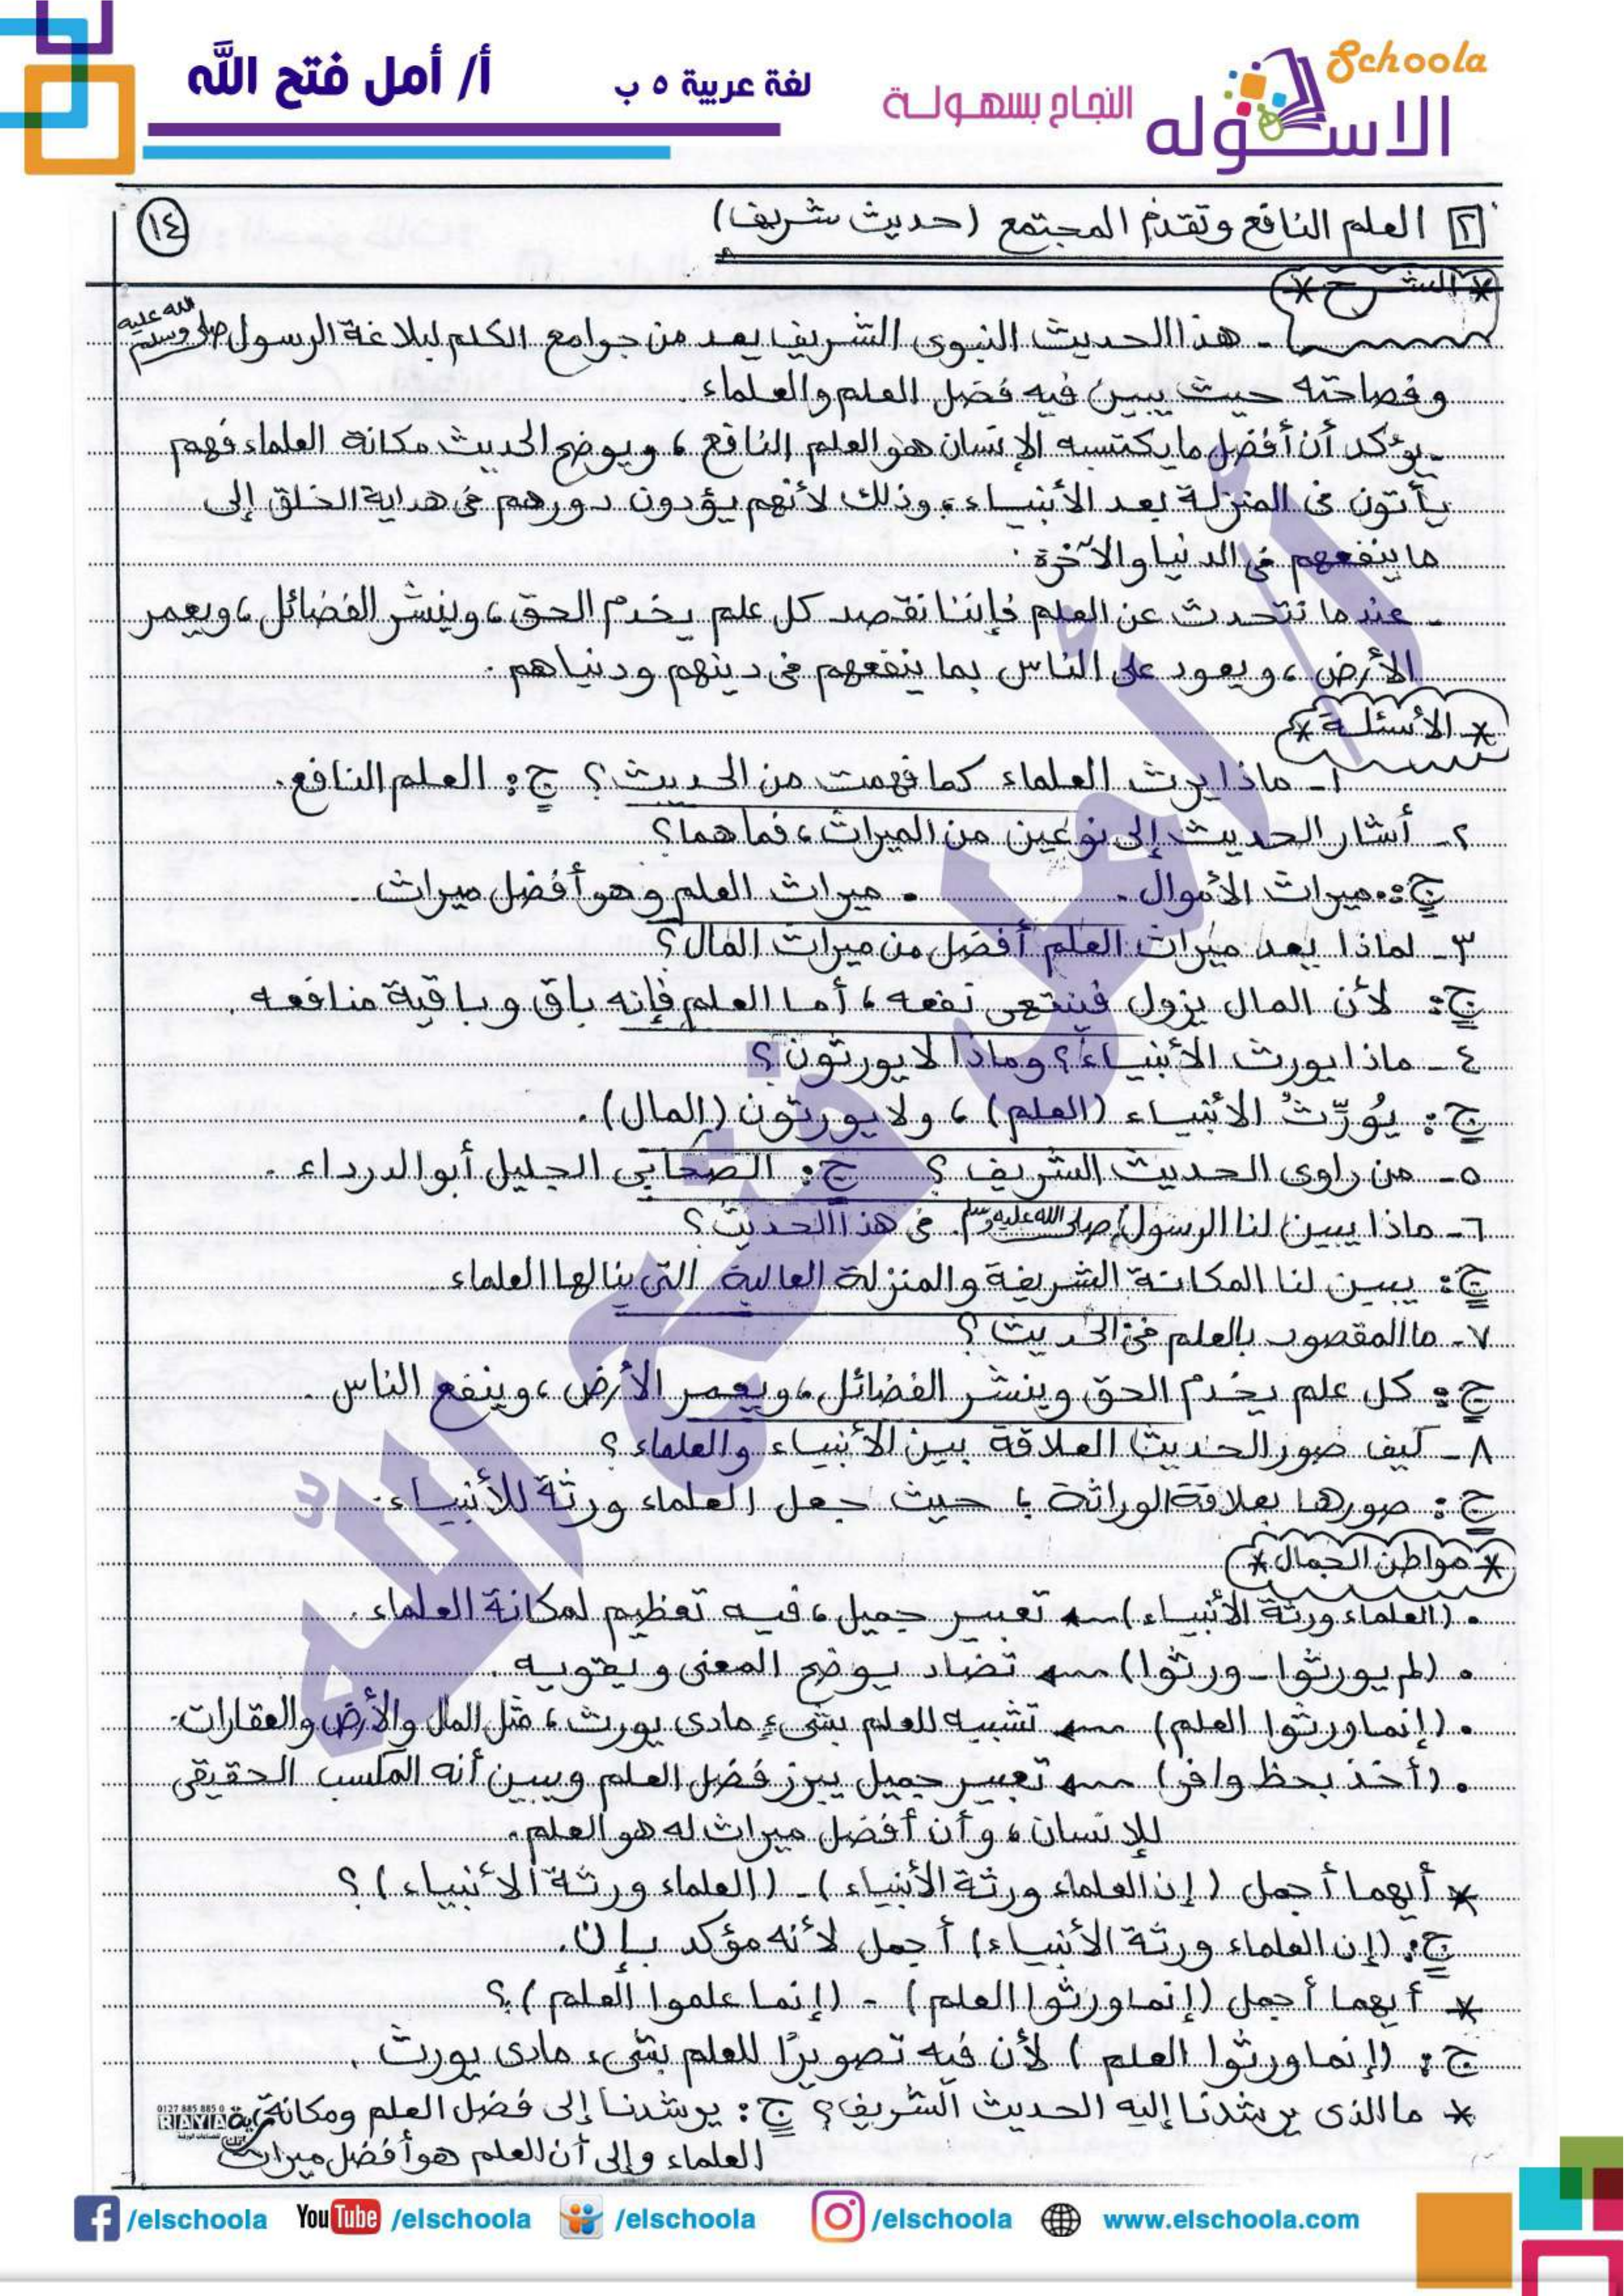 Schoola
الاسكوله
النجاح بسهولة
لغة عربية ٥ ب
أ/ أمل فتح الله
١٤
٢ العلم النافع وتقدم المجتمع (حديث شريف)
* الشرح *
- هذا الحديث النبوى الشريف يعد من جوامع الكلم لبلاغة الرسول صلى الله عليه وسلم
وفصاحته حيث يبين فيه فضل العلم والعلماء.
- يؤكد أن أفضل ما يكتسبه الإنسان هو العلم النافع، ويوضح الحديث مكانة العلماء فهم
يأتون فى المنزلة بعد الأنبياء، وذلك لأنهم يؤدون دورهم فى هداية الخلق إلى
ما ينفعهم فى الدنيا والآخرة.
- عندما نتحدث عن العلم فإننا نقصد كل علم يخدم الحق، وينشر الفضائل، ويعمر
الأرض، ويعود على الناس بما ينفعهم فى دينهم ودنياهم.
* الأسئلة *
١- ماذا يرث العلماء كما فهمت من الحديث؟ ج: العلم النافع.
٢- أشار الحديث إلى نوعين من الميراث، فما هما؟
ج: • ميراث الأموال. • ميراث العلم وهو أفضل ميراث.
٣- لماذا يعد ميراث العلم أفضل من ميراث المال؟
ج: لأن المال يزول فينتهى نفعه، أما العلم فإنه باق وباقية منافعه.
٤- ماذا يورث الأنبياء؟ وماذا لا يورثون؟
ج: يُورِّثُ الأنبياء (العلم)، ولا يورثون (المال).
٥- من راوى الحديث الشريف؟ ج: الصحابى الجليل أبو الدرداء.
٦- ماذا يبين لنا الرسول صلى الله عليه وسلم فى هذا الحديث؟
ج: يبين لنا المكانة الشريفة والمنزلة العالية التى ينالها العلماء
٧- ما المقصود بالعلم فى الحديث؟
ج: كل علم يخدم الحق وينشر الفضائل، ويعمر الأرض، وينفع الناس.
٨- كيف صور الحديث العلاقة بين الأنبياء والعلماء؟
ج: صورها بعلاقة الوراثة؛ حيث جعل العلماء ورثة للأنبياء.
* مواطن الجمال *
• (العلماء ورثة الأنبياء) ← تعبير جميل، فيه تعظيم لمكانة العلماء.
• (لم يورثوا - ورثوا) ← تضاد يوضح المعنى ويقويه.
• (إنما ورثوا العلم) ← تشبيه للعلم بشىء مادى يورث، مثل المال والأرض والعقارات.
• (أخذ بحظ وافر) ← تعبير جميل يبرز فضل العلم ويبين أنه المكسب الحقيقى
للإنسان، وأن أفضل ميراث له هو العلم.
* أيهما أجمل (إن العلماء ورثة الأنبياء) - (العلماء ورثة الأنبياء)؟
ج: (إن العلماء ورثة الأنبياء) أجمل لأنه مؤكد بإن.
* أيهما أجمل (إنما ورثوا العلم) - (إنما علموا العلم)؟
ج: (إنما ورثوا العلم) لأن فيه تصويرًا للعلم بشىء مادى يورث.
* ما الذى يرشدنا إليه الحديث الشريف؟ ج: يرشدنا إلى فضل العلم ومكانة
العلماء وإلى أن العلم هو أفضل ميراث
0127 885 885 0
RAYA
أ/ أمل فتح الله
/elschoola
YouTube /elschoola
/elschoola
/elschoola
www.elschoola.com